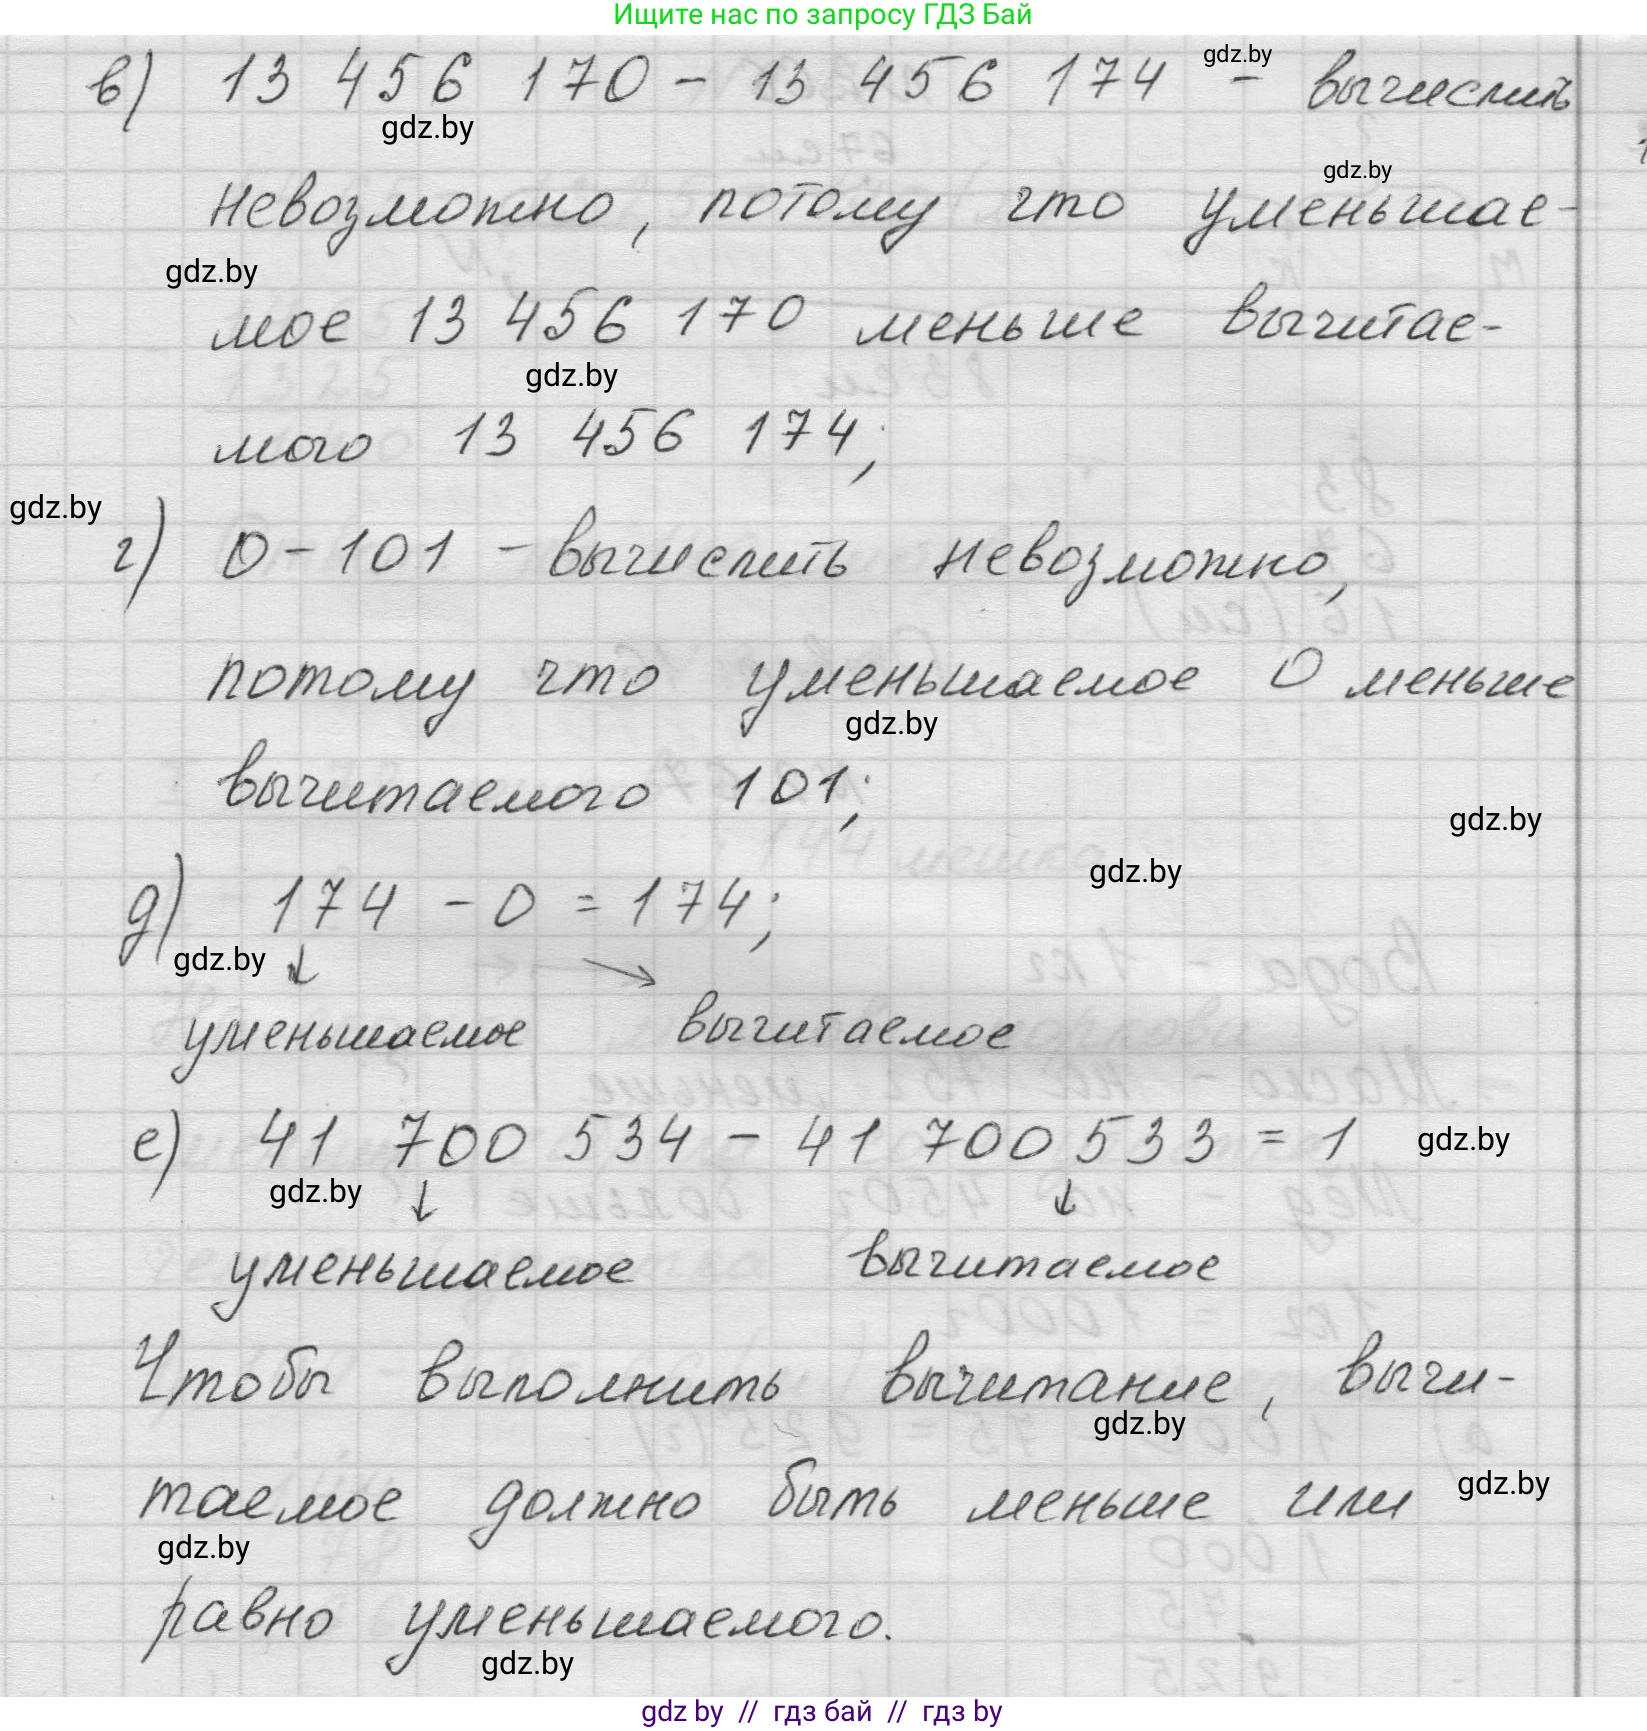 Ищите нас по запросу ГДЗ Бай
gdz.by
в) 13 456 170 - 13 456 174 - вычислить
gdz.by
gdz.by
невозможно, потому что уменьшае-
gdz.by
мое 13 456 170 меньше вычитае-
gdz.by
мого 13 456 174;
gdz.by
г) 0 - 101 - вычислить невозможно,
потому что уменьшаемое 0 меньше
gdz.by
вычитаемого 101;
gdz.by
gdz.by
д) 174 - 0 = 174;
gdz.by
↓ →
уменьшаемое вычитаемое
е) 41 700 534 - 41 700 533 = 1 gdz.by
gdz.by
↓ ↓
уменьшаемое вычитаемое
Чтобы выполнить вычитание, вычи-
gdz.by
таемое должно быть меньше или gdz.by
gdz.by
равно уменьшаемого.
gdz.by
gdz by // гдз бай // гдз by